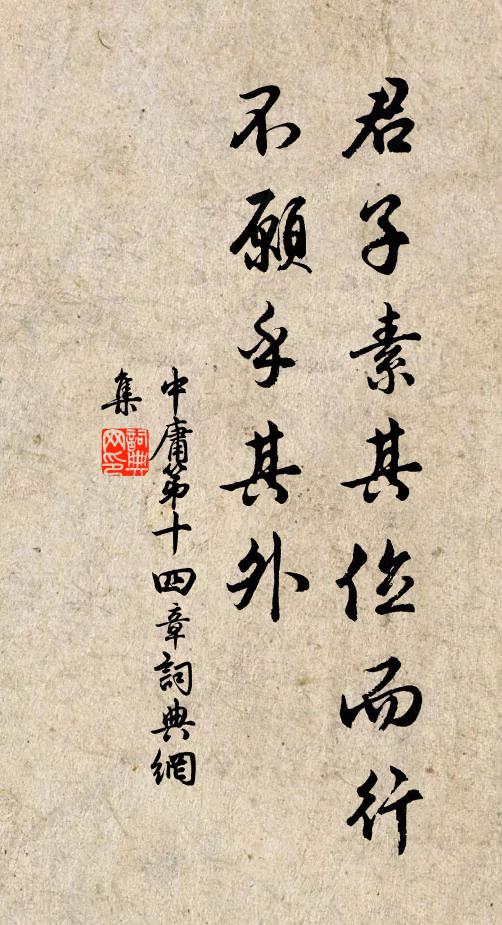 君子素其位而行
不願乎其外
中庸第十四章詞典網
集
詞典网印